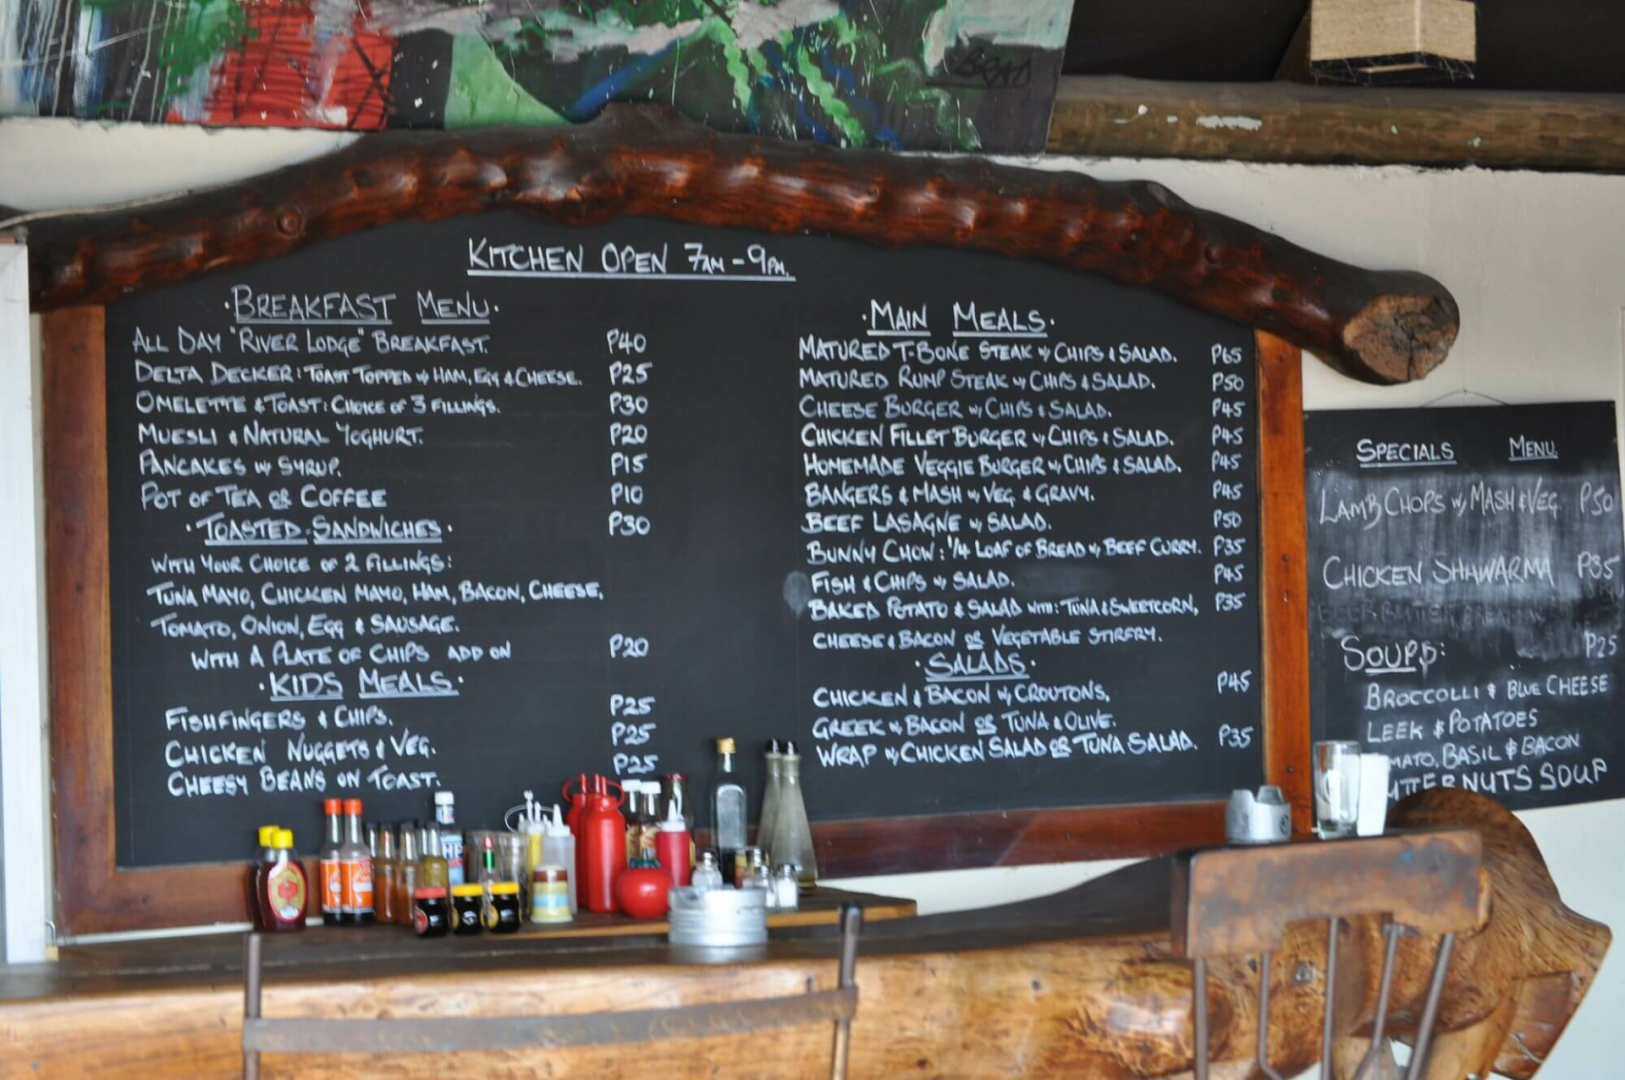 BRAD
KITCHEN OPEN 7AM - 9PM.
·BREAKFAST MENU·
ALL DAY "RIVER LODGE" BREAKFAST. P40
DELTA DECKER: TOAST TOPPED w HAM, EGG & CHEESE. P25
OMELETTE & TOAST: CHOICE OF 3 FILLINGS. P30
MUESLI & NATURAL YOGHURT. P20
PANCAKES w SYRUP. P15
POT OF TEA OR COFFEE P10
·TOASTED·SANDWICHES· P30
WITH YOUR CHOICE OF 2 FILLINGS:
TUNA MAYO, CHICKEN MAYO, HAM, BACON, CHEESE,
TOMATO, ONION, EGG & SAUSAGE.
WITH A PLATE OF CHIPS ADD ON P20
·KIDS MEALS·
FISHFINGERS & CHIPS. P25
CHICKEN NUGGETS & VEG. P25
CHEESY BEANS ON TOAST. P25
·MAIN MEALS·
MATURED T-BONE STEAK w CHIPS & SALAD. P65
MATURED RUMP STEAK w CHIPS & SALAD. P50
CHEESE BURGER w CHIPS & SALAD. P45
CHICKEN FILLET BURGER w CHIPS & SALAD. P45
HOMEMADE VEGGIE BURGER w CHIPS & SALAD. P45
BANGERS & MASH w VEG & GRAVY. P45
BEEF LASAGNE w SALAD. P50
BUNNY CHOW: 1/4 LOAF OF BREAD w BEEF CURRY. P35
FISH & CHIPS w SALAD. P45
BAKED POTATO & SALAD WITH: TUNA & SWEETCORN, P35
CHEESE & BACON OR VEGETABLE STIRFRY.
·SALADS·
CHICKEN & BACON w CROUTONS. P45
GREEK w BACON OR TUNA & OLIVE.
WRAP w CHICKEN SALAD OR TUNA SALAD. P35
SPECIALS MENU
LAMB CHOPS w MASH & VEG P50
CHICKEN SHAWARMA P35
SOUPS: P25
BROCCOLLI & BLUE CHEESE
LEEK & POTATOES
MATO, BASIL & BACON
UTTERNUTS SOUP